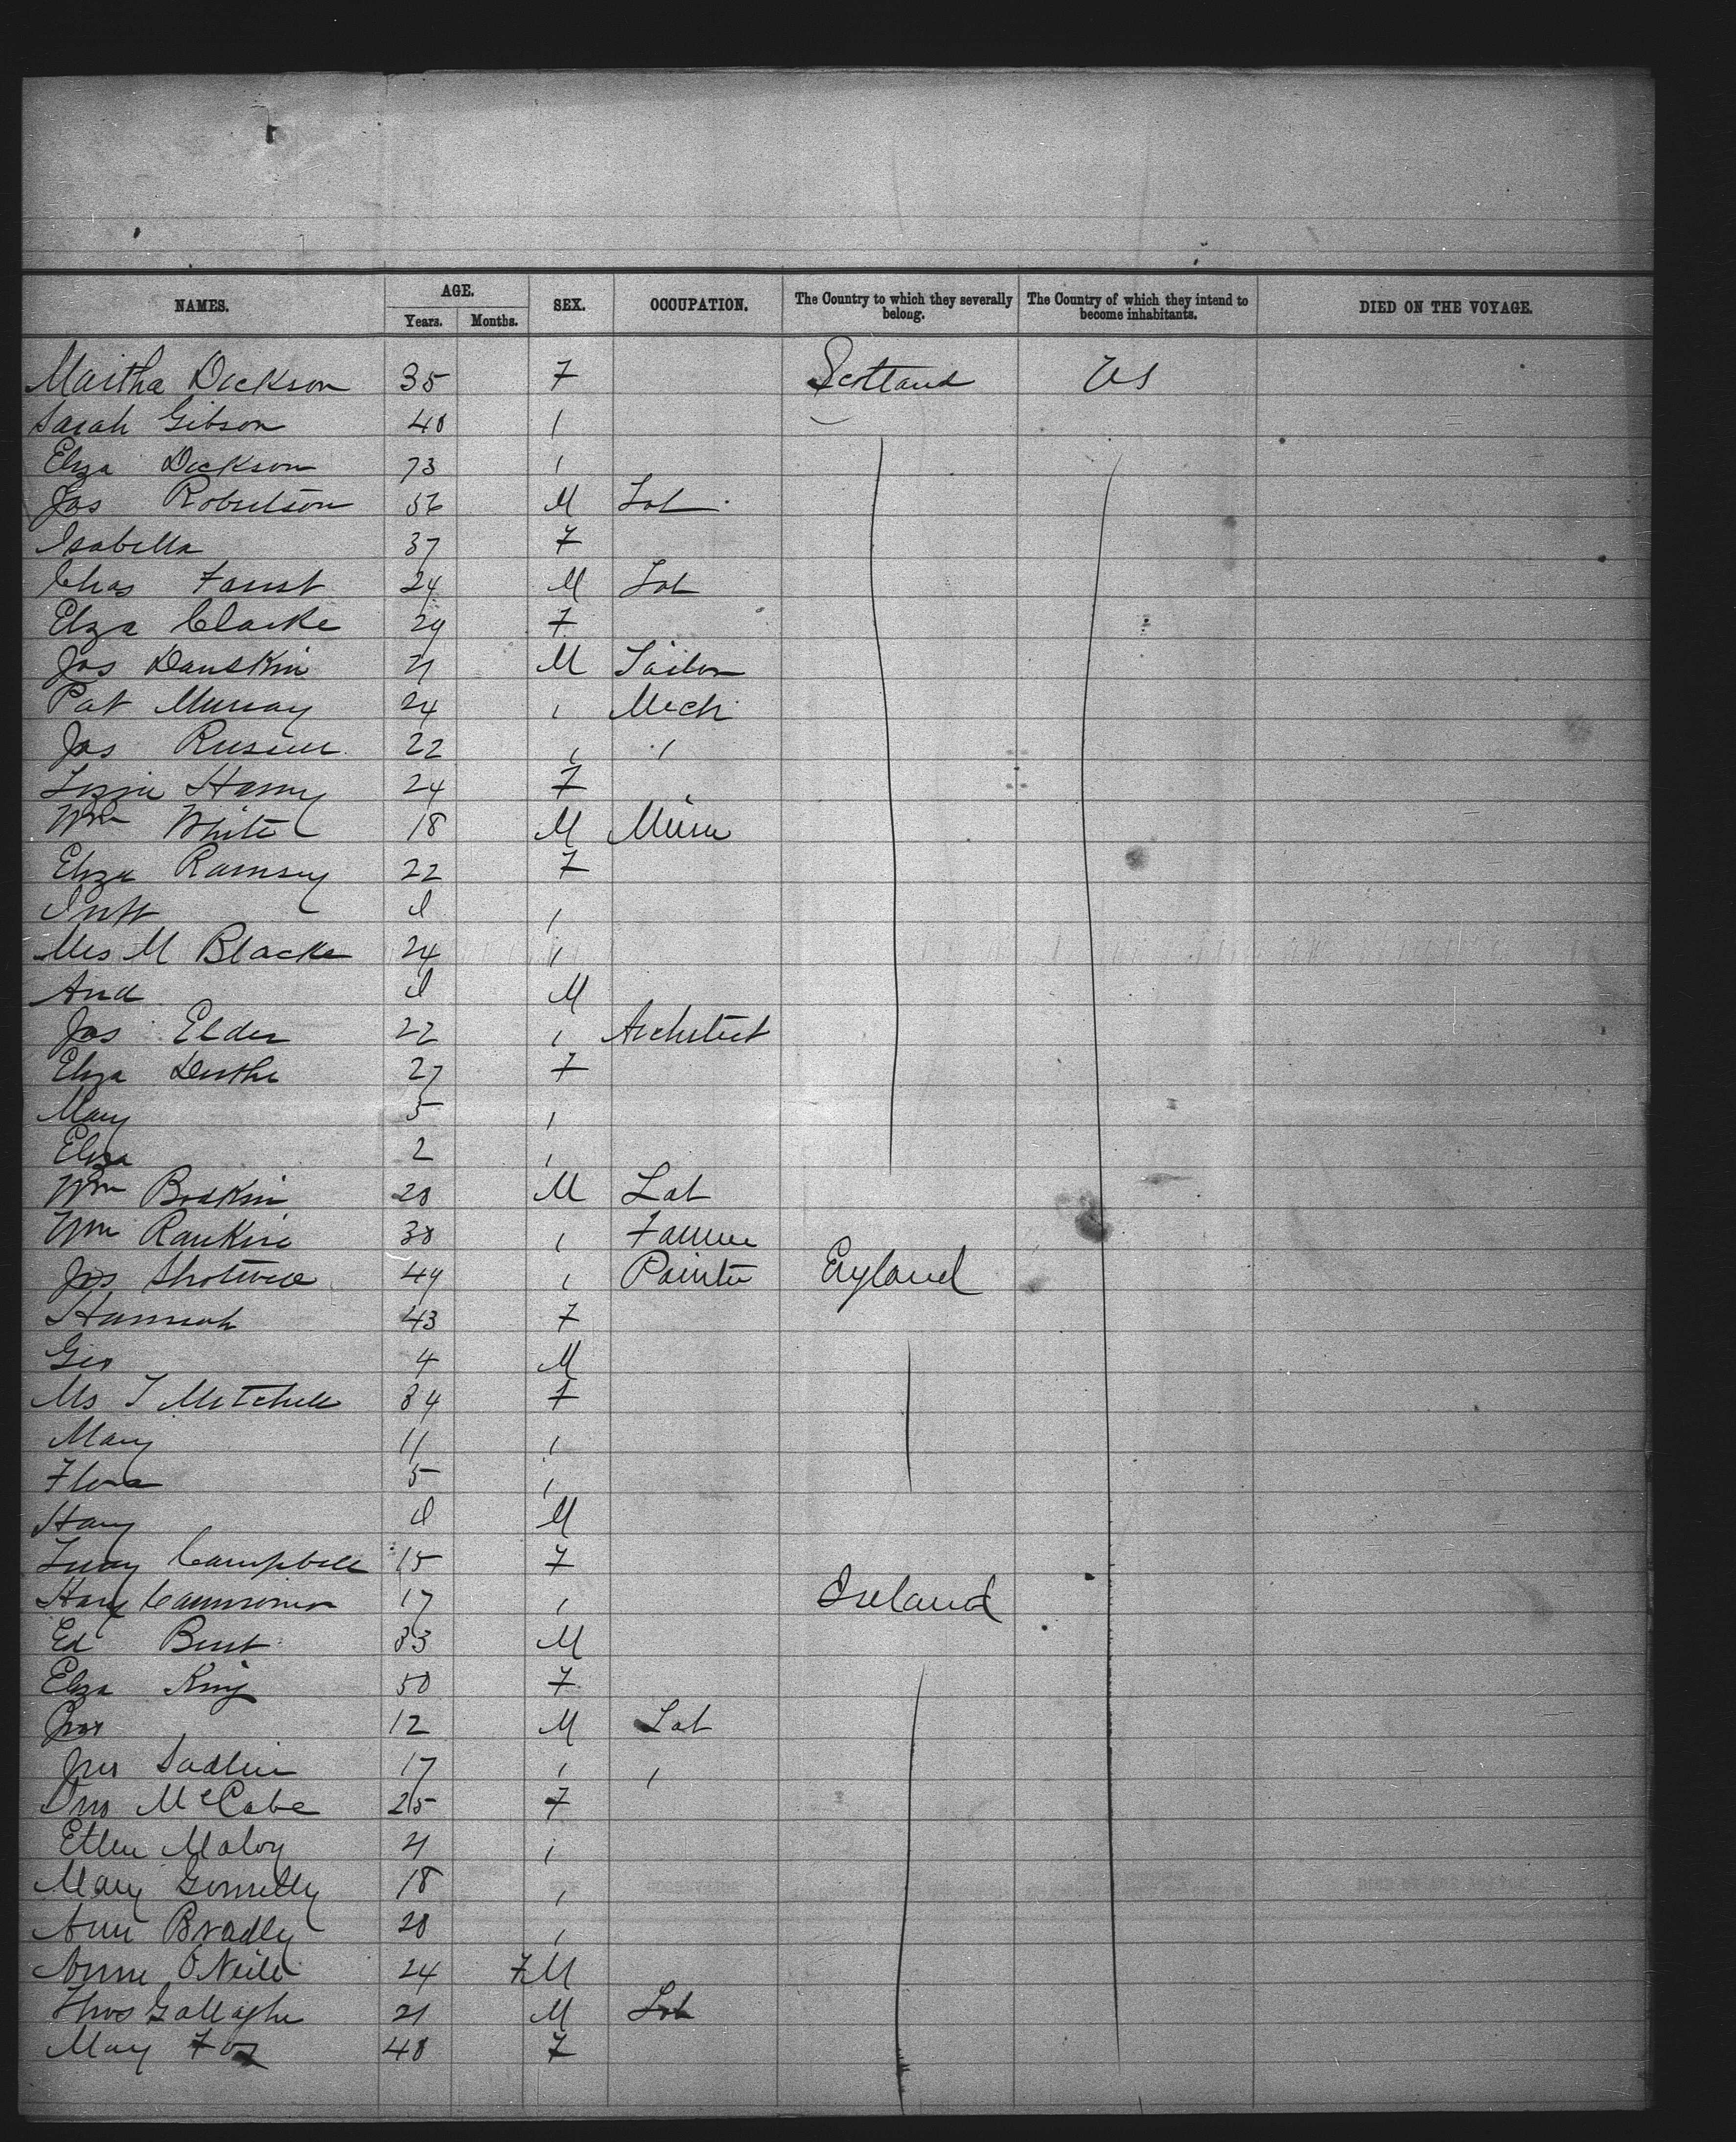 NAMES. AGE. SEX. OCCUPATION. The Country to which they severally belong. The Country of which they intend to become inhabitants. DIED ON THE VOYAGE.
Years. Months.
Martha Dickson 35 F Scotland US
Sarah Gibson 40
Eliza Dickson 73
Jas Robertson 36 M Lab
Isabella 37 F
Chas Faust 24 M Lab
Elza Clarke 29 F
Jas Danskin 21 M Tailor
Pat Murray 24 Mech
Jas 22
Lizzie 24 F
Wm White 18 M Miner
Eliza Ramsey 22 F
Inft
Mrs M Blacke 24
And M
Jas Elder 22 Architect
Eliza 27 F
Mary 5
Eliza 2
Wm Bodkin 28 M Lab
Wm Rankine 38 Farmer
Jos 49 Painter England
Hannah 43 F
Geo 4 M
Ms J Mitchell 34 F
Mary 11
Flora 5
Harry M
Campbell 15 F
17 Ireland
Ed 33 M
Eliza King 50 F
12 M Lab
17
McCabe 25 F
Ellen Maloy 21
Mary 18
Ann Bradly 20
Annie O'Neill 24 F M
Thos Gallaghe 21 M Lab
May Fox 48 F